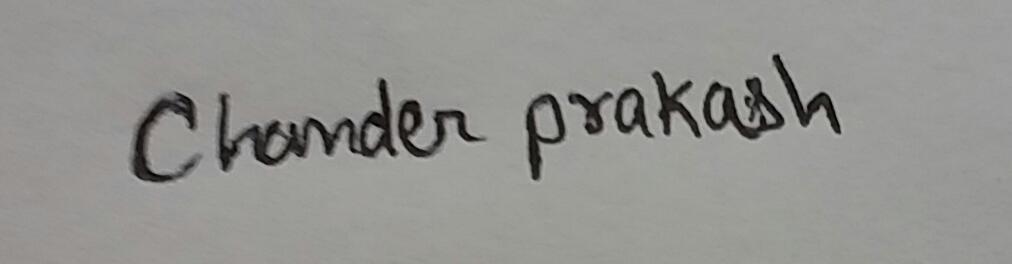 Chander prakash